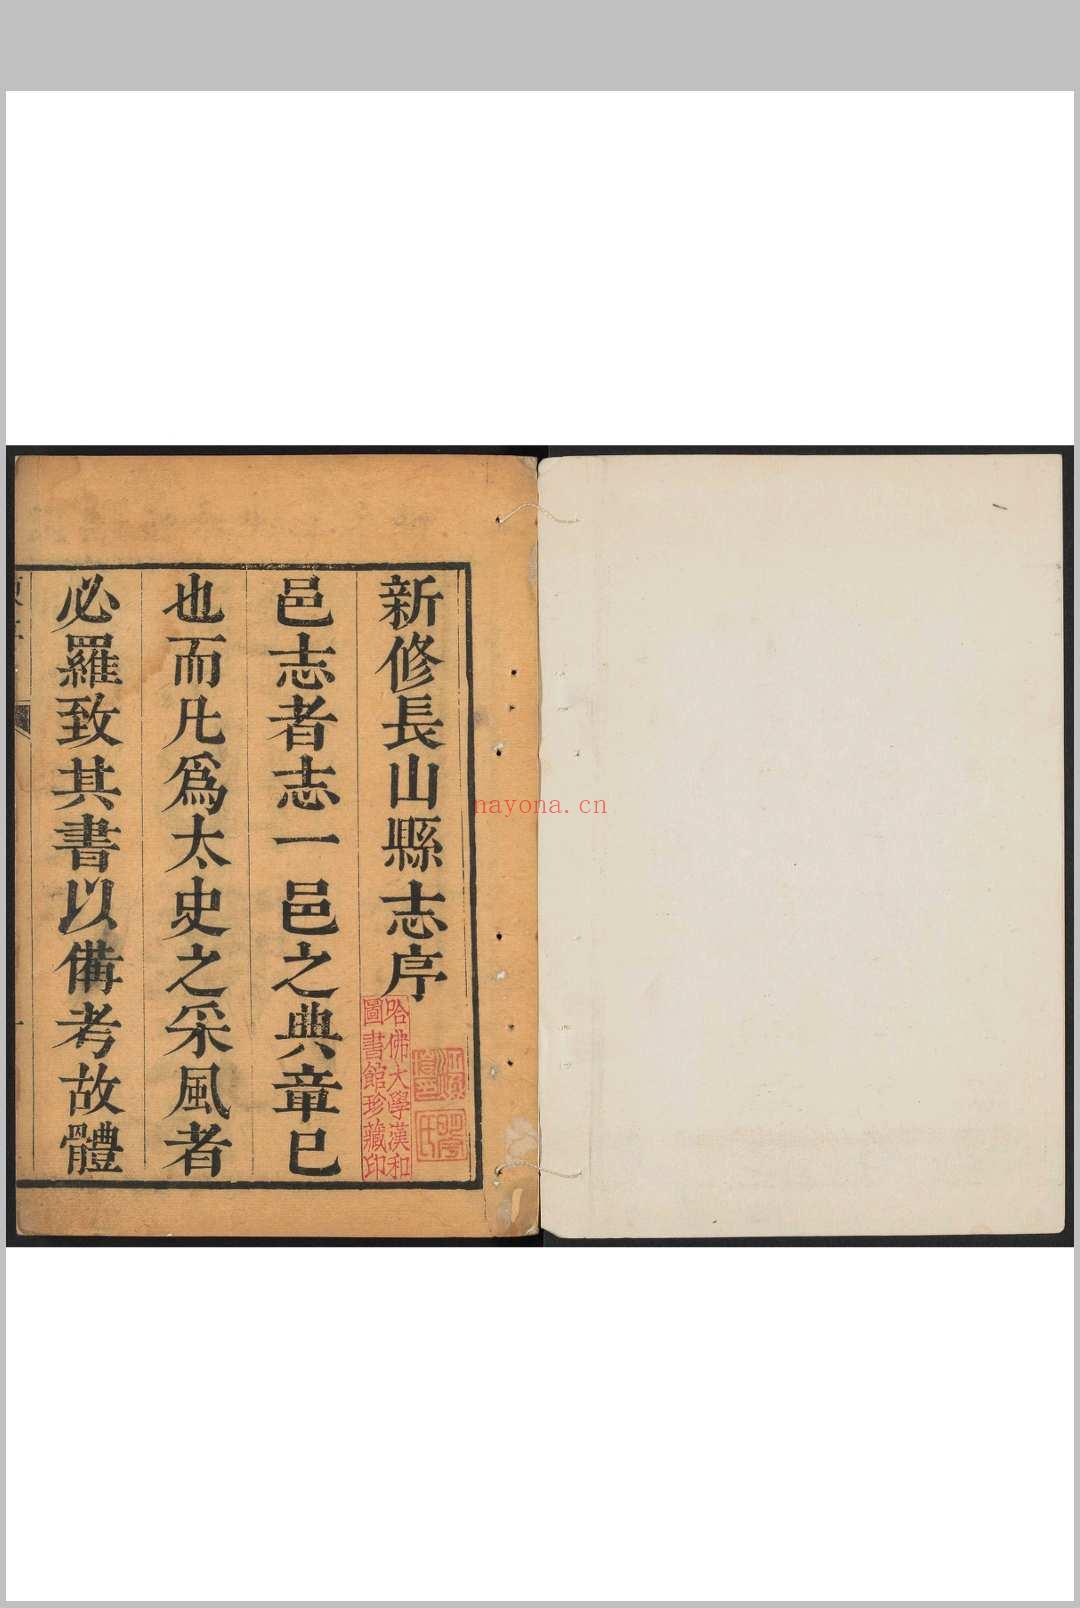 新修長山縣志序
邑志者志一邑之典章已
也而凡爲太史之采風者
必羅致其書以備考故體
哈佛大學漢和
圖書館珍藏印
nayona.cn